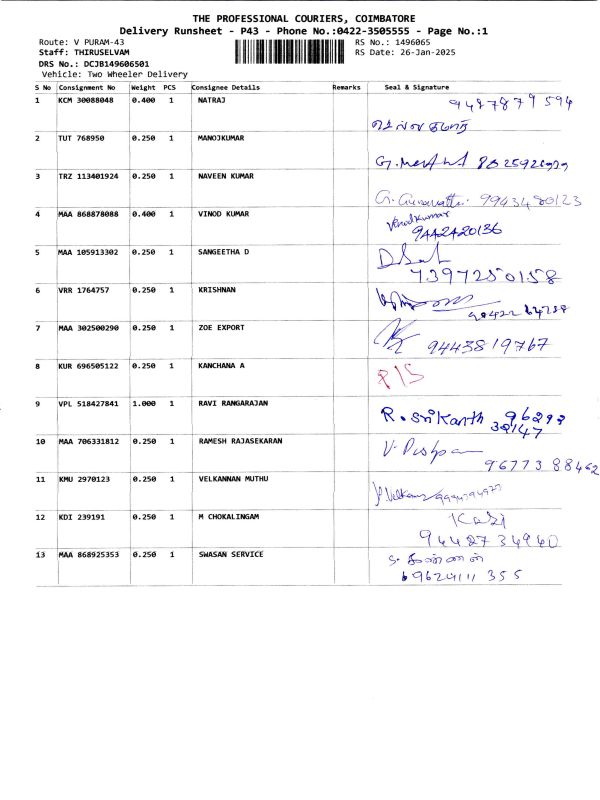 THE PROFESSIONAL COURIERS, COIMBATORE
Delivery Runsheet - P43 - Phone No.:0422-3505555 - Page No.:1
Route: V PURAM-43 RS No.: 1496065
Staff: THIRUSELVAM RS Date: 26-Jan-2025
DRS No.: DCJB149606501
Vehicle: Two Wheeler Delivery
S No Consignment No Weight PCS Consignee Details Remarks Seal & Signature
1 KCM 30088048 0.400 1 NATRAJ
2 TUT 768950 0.250 1 MANOJKUMAR
3 TRZ 113401924 0.250 1 NAVEEN KUMAR
9943480123
4 MAA 868878088 0.400 1 VINOD KUMAR Vinodkumar
9442420136
5 MAA 105913302 0.250 1 SANGEETHA D
7397250158
6 VRR 1764757 0.250 1 KRISHNAN
7 MAA 302500290 0.250 1 ZOE EXPORT
9443819767
8 KUR 696505122 0.250 1 KANCHANA A
9 VPL 518427841 1.000 1 RAVI RANGARAJAN R. Srikanth
10 MAA 706331812 0.250 1 RAMESH RAJASEKARAN
9677388462
11 KMU 2970123 0.250 1 VELKANNAN MUTHU
12 KDI 239191 0.250 1 M CHOKALINGAM
13 MAA 868925353 0.250 1 SWASAN SERVICE